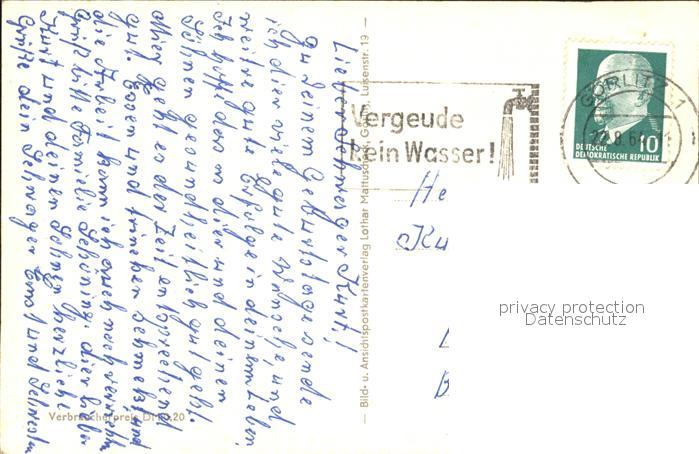 Lieber Schwager Kurt!
Zu deinem Geburtstage sende
ich dir viele gute Wünsche, und
weitere gute Erfolge in deinem Leben
Ich hoffe das es dir und deinen
Söhnen gesundheitlich gut geht.
geht es der Zeit entsprechend
gut. Essen und trinken schmeckt, und
die Arbeit kann ich auch noch verrichten
Familie Schöning. dir lieber
Kurt und deinen Söhnen herzliche
Grüße dein Schwager Ernst und
Verbraucherpreis DM 0,20
Bild- u. Ansichtspostkartenverlag Lothar Mattuschek, Görlitz, Luisenstr. 19
Vergeude
kein Wasser!
GÖRLITZ 1
10
DEUTSCHE
DEMOKRATISCHE REPUBLIK
He
Ku
privacy protection
Datenschutz